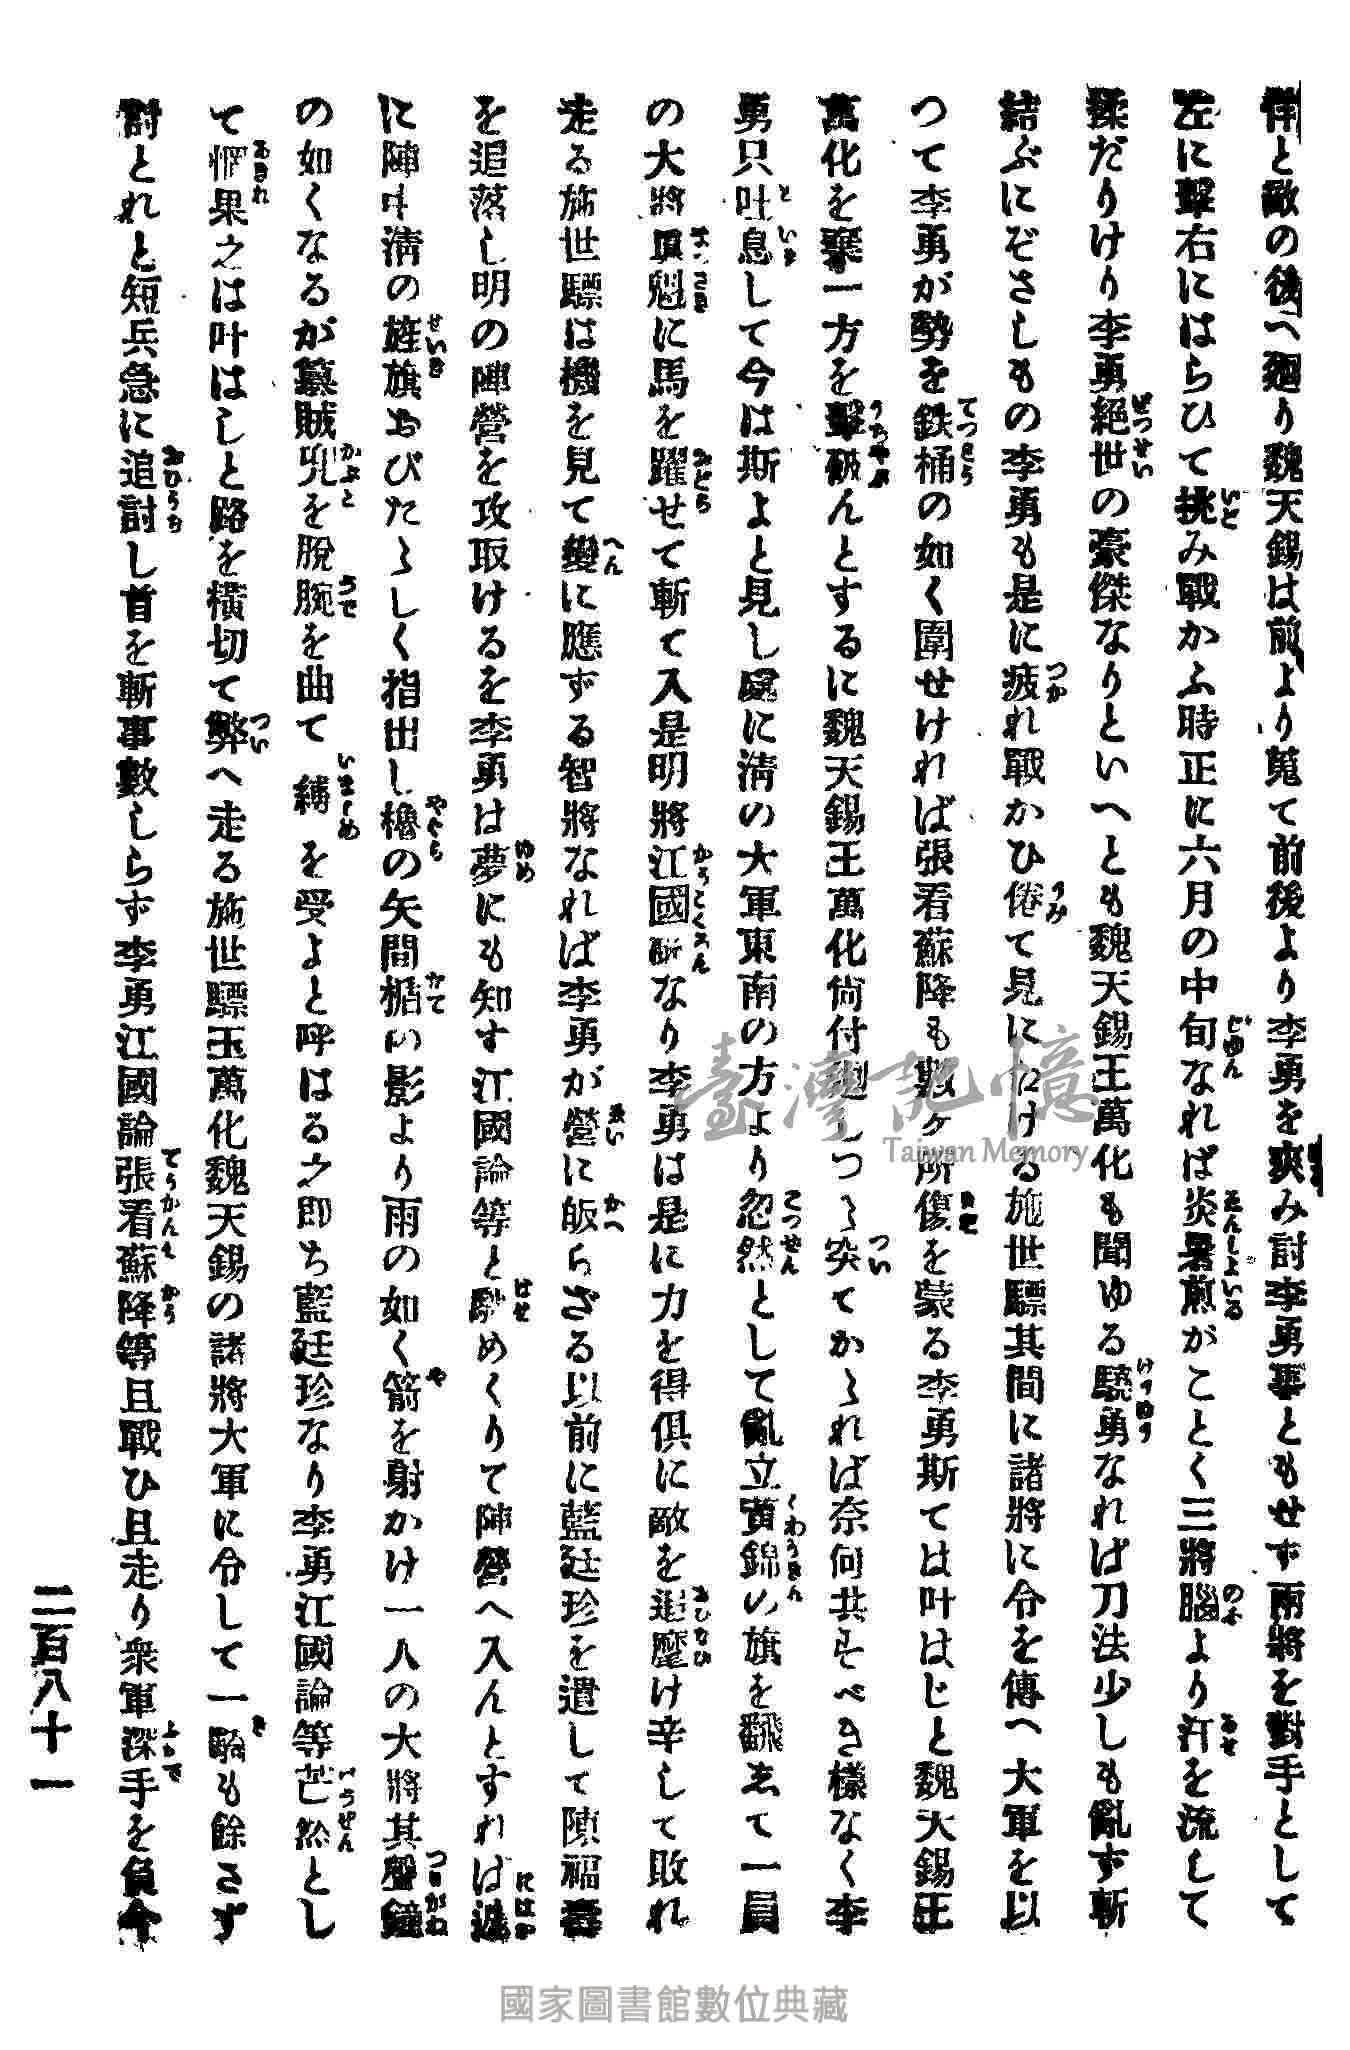 と敵の後へ廻り魏天錫は前より蒐て前後より李勇を夾み討李勇事ともせず兩將を對手として
左に擊右にはらひて挑み戰かふ時正に六月の中旬なれば炎暑煎がことく三將腦より汗を流して
揉だりけり李勇絕世の豪傑なりといへとも魏天錫王萬化も聞ゆる驍勇なれば刀法少しも亂ず斬
結ぶにぞさしもの李勇も是に疲れ戰かひ倦て見にける施世驃其間に諸將に令を傳へ大軍を以
つて李勇が勢を鉄桶の如く圍せければ張看蘇降も數ヶ所傷を蒙る李勇斯ては叶はじと魏天錫王
萬化を棄一方を擊破んとするに魏天錫王萬化尙付しつゝ突てかゝれば奈何共すべき樣なく李
勇只吐息して今は斯よと見し處に淸の大軍東南の方より忽然として亂立黃錦の旗を飜ゑて一員
の大將眞魁に馬を躍せて斬て入是明將江國なり李勇は是に力を得俱に敵を追麾け辛して敗れ
走る施世驃は機を見て變に應ずる智將なれば李勇が營に皈らざる以前に藍廷珍を遣して陳福壽
を追落し明の陣營を攻取けるを李勇は夢にも知す江國論等と馳めくりて陣營へ入んとすれば
に陣中淸の旌旗おびたゝしく指出し櫓の矢間楯の影より雨の如く箭を射かけ一人の大將其聲鐘
の如くなるが簒賊兜を脫腕を曲て縛を受よと呼はる之卽ち藍廷珍なり李勇江國論等芒然とし
て惘果之は叶はしと路を橫切て弊へ走る施世驃王萬化魏天錫の諸將大軍に令して一騎も餘さず
討とれと短兵急に追討し首を斬事數しらず李勇江國論張看蘇降等且戰ひ且走り衆軍深手を負今
二百八十一
臺灣記憶
Taiwan Memory
國家圖書館數位典藏